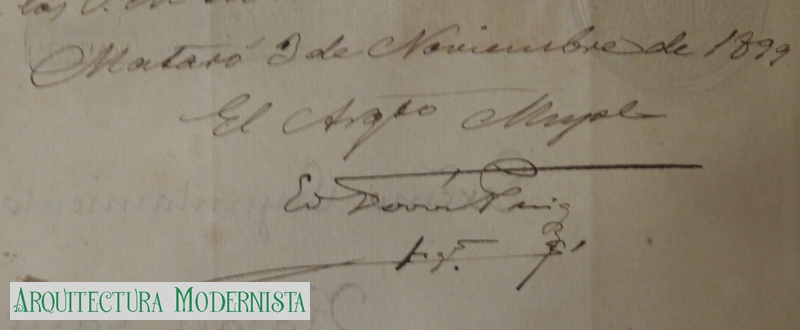 los
Mataró 3 de Noviembre de 1899
El Arqto Mupl
Ferrés Puig
ARQUITECTURA MODERNISTA